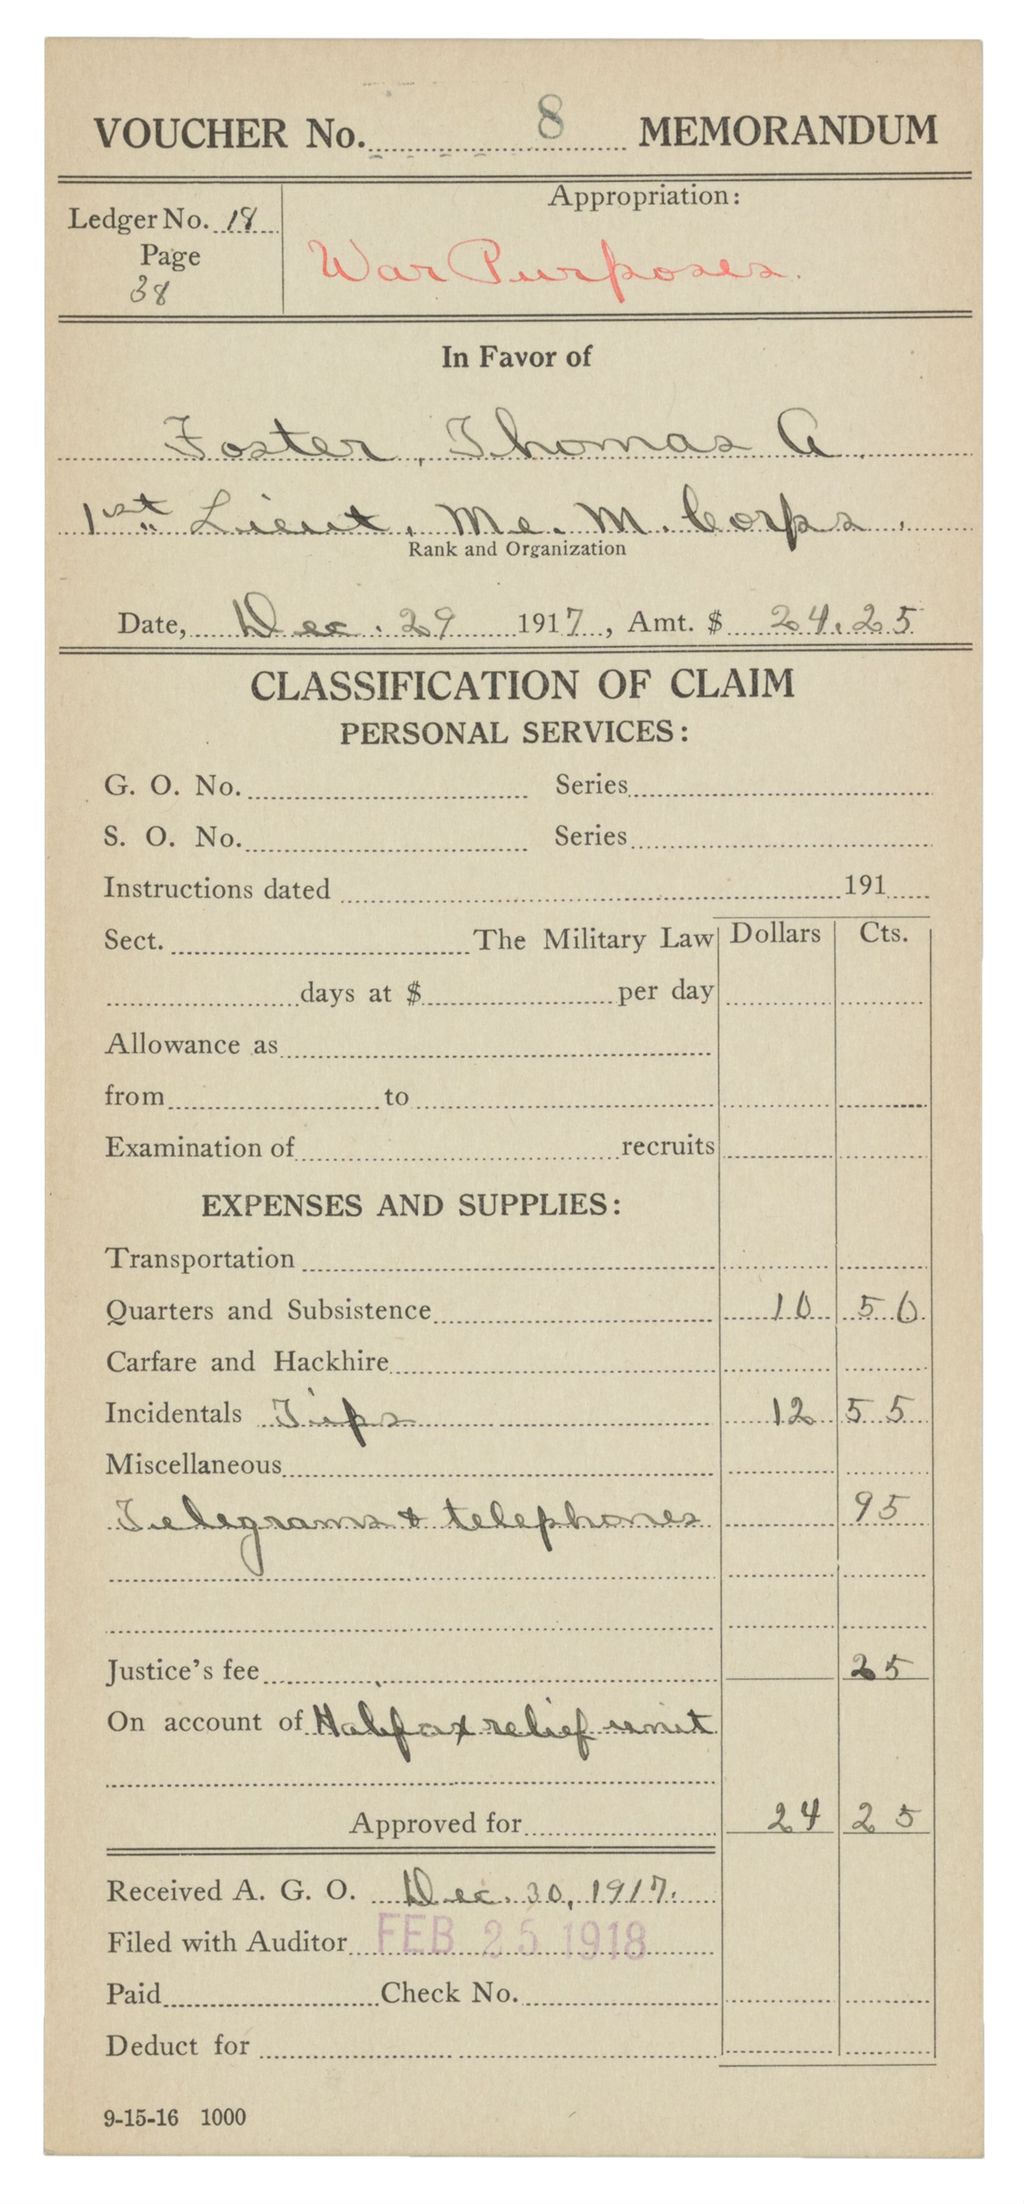 VOUCHER No. 8 MEMORANDUM
Ledger No. 18
Page
38
Appropriation:
War Purposes.
In Favor of
Foster, Thomas A.
1st Lieut, Me. M. Corps.
Rank and Organization
Date, Dec. 29 1917, Amt. $ 24.25
CLASSIFICATION OF CLAIM
PERSONAL SERVICES:
G. O. No. Series
S. O. No. Series
Instructions dated 191
Sect. The Military Law Dollars Cts.
days at $ per day
Allowance as
from to
Examination of recruits
EXPENSES AND SUPPLIES:
Transportation
Quarters and Subsistence 10 50
Carfare and Hackhire
Incidentals Tips 12 55
Miscellaneous
Telegrams & telephones 95
Justice's fee 25
On account of Halifax relief unit
Approved for 24 25
Received A. G. O. Dec. 30, 1917.
Filed with Auditor FEB 25 1918
Paid Check No.
Deduct for
9-15-16 1000